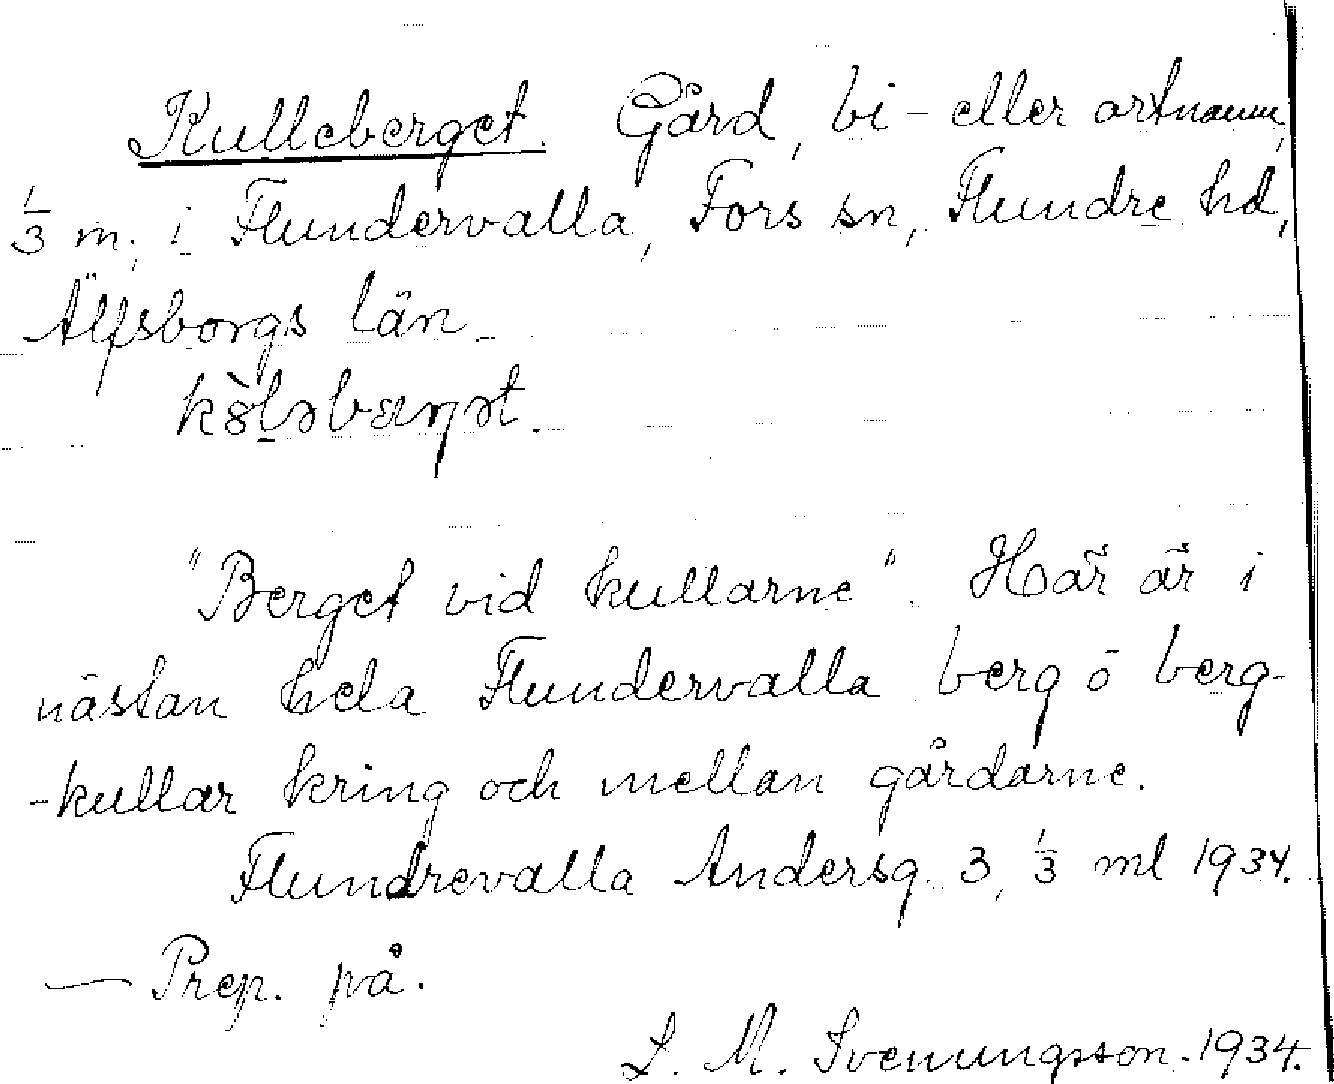 Kulleberget. Gård, bi- eller ortnamn,
1/3 m, i Flundervalla, Fors sn, Flundre hd,
Älfsborgs län.

"Berget vid kullarne". Här är i
nästan hela Flundervalla berg o berg-
-kullar kring och mellan gårdarne.
Flundrevalla Andersg. 3, 1/3 ml 1934.
— Prep. på.
L. M. Svenungsson. 1934.